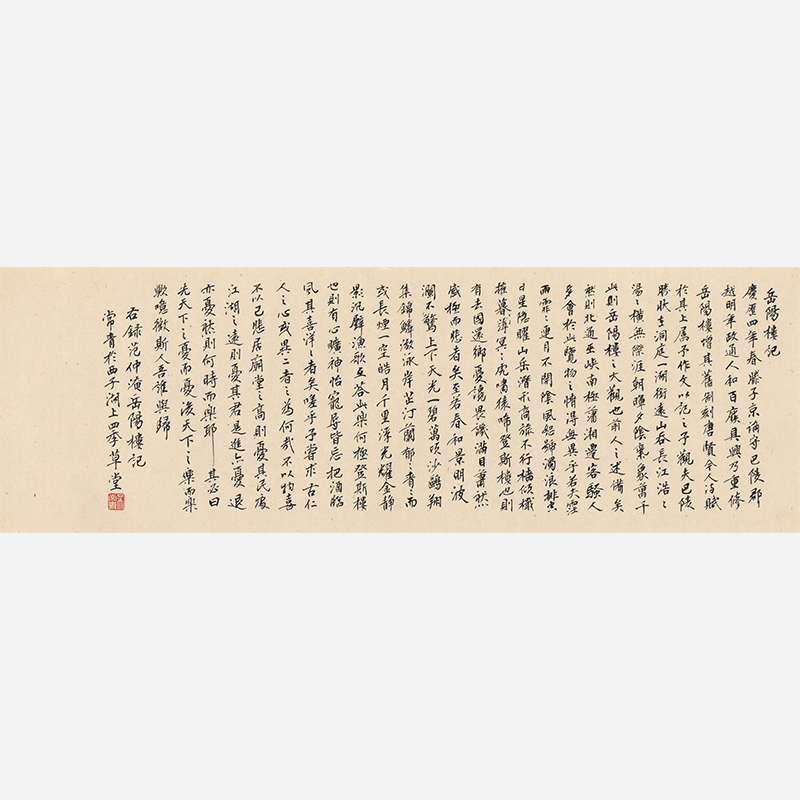 岳陽樓記
慶歷四年春滕子京謫守巴陵郡
越明年政通人和百廢具興乃重修
岳陽樓增其舊制刻唐賢今人詩賦
於其上属予作文以記之予觀夫巴陵
勝狀在洞庭一湖銜遠山吞長江浩〻
湯〻橫無際涯朝暉夕陰氣象萬千
此則岳陽樓之大觀也前人之述備矣
然則北通巫峽南極瀟湘遷客騷人
多會於此覽物之情得無異乎若夫霪
雨霏〻連月不開陰風怒號濁浪排空
日星隱曜山岳潛形商旅不行檣傾檝
摧暮薄冥〻虎嘯猿啼登斯樓也則
有去國還鄉憂讒畏譏滿目蕭然
感極而悲者矣至若春和景明波
瀾不驚上下天光一碧萬頃沙鷗翔
集錦鱗激泳岸芷汀蘭郁〻青〻而
或長煙一空皓月千里浮光耀金靜
影沉璧漁歌互答此樂何極登斯樓
也則有心曠神怡寵辱皆忘把酒臨
風其喜洋〻者矣嗟乎予嘗求古仁
人之心或異二者之為何哉不以物喜
不以己悲居廟堂之高則憂其民處
江湖之遠則憂其君是進亦憂退
亦憂然則何時而樂耶其必曰
先天下之憂而憂後天下之樂而樂
歟噫微斯人吾誰與歸
右録范仲淹岳陽樓記
常青於西子湖上四季草堂